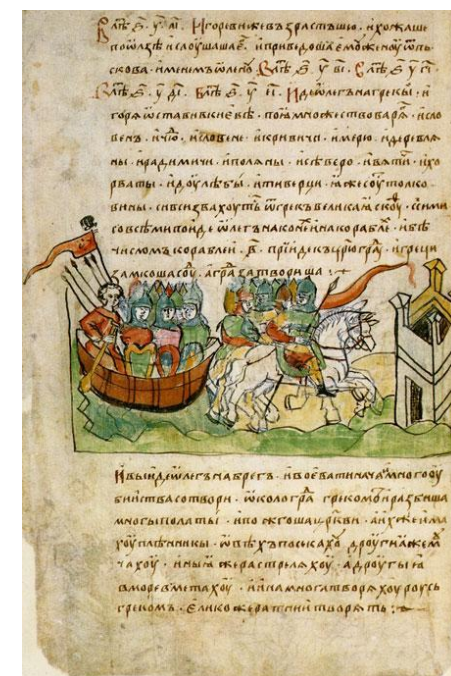 В лѣⷮ ҂ѕ҃ у҃ аі҃ · Игореви же възрастъшю · и хожаше
по ѡлзѣ и слоушаша еⷢ · и приведоша емоу женоу ѿ пь
скова · именемъ ѡленоу · В лѣⷮ ҂ѕ҃ у҃ ві҃ · В лѣⷮ ҂ѕ҃ у҃ гі҃ ·
В лѣⷮ ҂ѕ҃ у҃ ді҃ · В лѣⷮ ҂ѕ҃ у҃ еі҃ · Иде ѡлегъ на грекы · и
горѧ ѡстави в киевѣ · поѧ множество варѧⷢ · и сло
венъ · и чюⷣ · и словене · и кривичи · и мерю · и деревлѧ
ны · и радимичи · и полѧны · и сѣверо · и вѧтиⷱ · и хо
рваты · и доулѣбы · и тиверци · ꙗже соуⷮ толко
вины · си вси звахоуть ѿ грекъ великаꙗ скоуⷴ · с сими
со всѣми поиде ѡлегъ на конеⷯ и на кораблеⷯ · и бѣ
числомъ кораблеи · в҃ · прїиде къ црюграⷣ · и греци
замкоша соуⷣ · а граⷣ затвориша
И выиде ѡлегъ на брегъ · и воевати начѧ · и много оу
биства сотвори · ѡколо граⷣ грекомъ · и разбиша
многы полаты · и пожгоша церкви · а ихже има
хоуⷮ плѣнникы · ѡвѣхъ посѣкахоу дроугиа же мꙋ
чахоуⷯ · иныѧ же растрелѧхоу · а дроугыѧ
в море вметахоу · и ина многа творѧхоу роусь
грекомъ · елико же ратнии творѧть